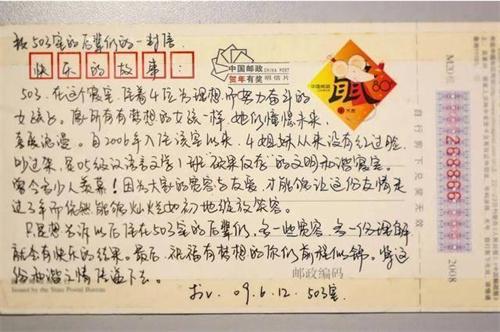 致503室的后辈们的一封信
快乐的故事：
中国邮政
CHINA POST
贺年有奖
明信片
中国邮政
鼠
80分
503，在这个寝室，住着4位为理想而努力奋斗的
女孩子。同所有有梦想的女孩一样，她们憧憬未来，
喜欢浪漫。自2006年入住该室以来，4姐妹从来没有红过脸，
吵过架，是05级汉语言文学1班"硕果仅存"的文明和谐寝室，
要令多少人羡慕！因为大家的宽容与友爱，才能够让这份友情走
过3年而依然能够灿烂如初地绽放容。
只是想告诉以后住在503室的后辈们，多一些宽容，多一份理解
就会有快乐的结果。最后，祝福有梦想的你们前程似锦。将这
份和谐之情传递下去。
邮政编码
Issued by the State Postal Bureau
09.6.12. 503室
268866
2008
自行剪下兑奖无效